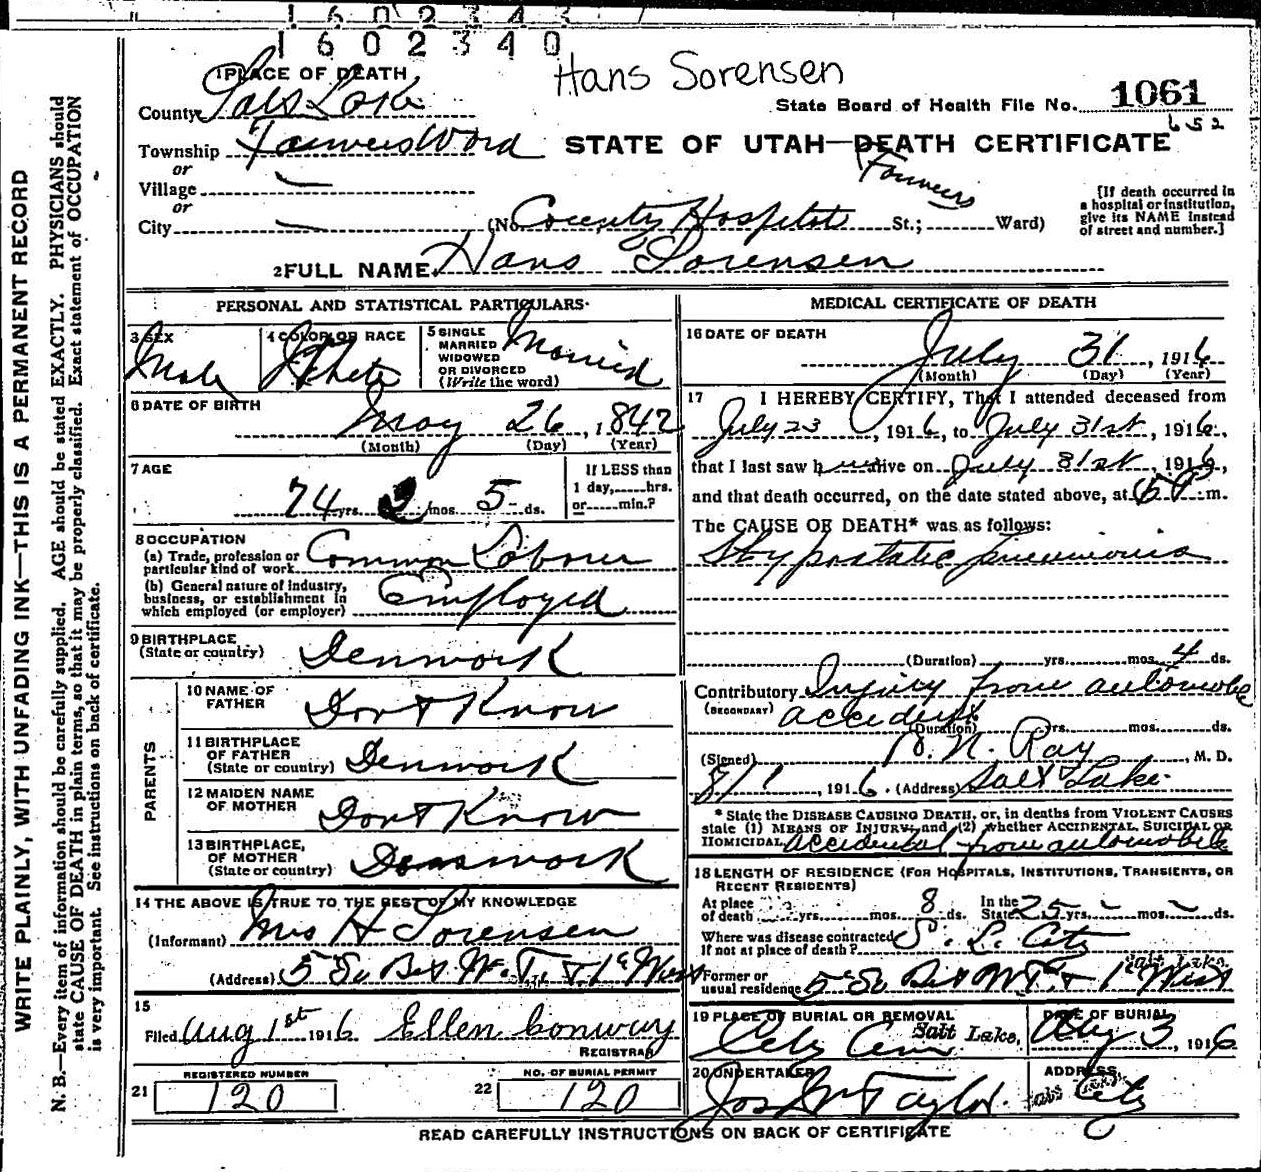 1 6 0 2 3 4 3
1 6 0 2 3 4 0
Hans Sorensen
1 PLACE OF DEATH
County Salt Lake
State Board of Health File No. 1061
652
Township Farmers Ward
STATE OF UTAH—DEATH CERTIFICATE
or
Village
or
City
(No. County Hospital St.; Farmers Ward)
[If death occurred in a hospital or institution, give its NAME instead of street and number.]
2 FULL NAME Hans Sorensen
PERSONAL AND STATISTICAL PARTICULARS
3 SEX
Male
4 COLOR OR RACE
White
5 SINGLE MARRIED WIDOWED OR DIVORCED (Write the word)
Married
6 DATE OF BIRTH
May 26, 1842
(Month) (Day) (Year)
7 AGE
74 yrs. 2 mos. 5 ds.
If LESS than 1 day, hrs. or min.?
8 OCCUPATION
(a) Trade, profession or particular kind of work Common Laborer
(b) General nature of industry, business, or establishment in which employed (or employer) Employed
9 BIRTHPLACE
(State or country) Denmark
PARENTS
10 NAME OF FATHER Don't Know
11 BIRTHPLACE OF FATHER (State or country) Denmark
12 MAIDEN NAME OF MOTHER Don't Know
13 BIRTHPLACE, OF MOTHER (State or country) Denmark
14 THE ABOVE IS TRUE TO THE BEST OF MY KNOWLEDGE
(Informant) Mrs H Sorensen
(Address) 5 So Bet W. T. & 1st West
15
Filed Aug 1st 1916 Ellen Conway
REGISTRAR
21 REGISTERED NUMBER
120
22 NO. OF BURIAL PERMIT
120
MEDICAL CERTIFICATE OF DEATH
16 DATE OF DEATH
July 31, 1916
(Month) (Day) (Year)
17 I HEREBY CERTIFY, That I attended deceased from
July 23, 1916, to July 31st, 1916,
that I last saw him alive on July 31st, 1916,
and that death occurred, on the date stated above, at m.
The CAUSE OF DEATH* was as follows:
Hypostatic pneumonia
(Duration) yrs. mos. 4 ds.
Contributory Injury from automobile
(SECONDARY) accident
(Duration) yrs. mos. ds.
(Signed) N. Ray, M. D.
8/1, 1916. (Address) Salt Lake
* State the DISEASE CAUSING DEATH, or, in deaths from VIOLENT CAUSES
state (1) MEANS OF INJURY; and (2) whether ACCIDENTAL, SUICIDAL OR
HOMICIDAL. Accidental from automobile
18 LENGTH OF RESIDENCE (FOR HOSPITALS, INSTITUTIONS, TRANSIENTS, OR RECENT RESIDENTS)
At place of death yrs. mos. 8 ds. In the State 25 yrs. - mos. - ds.
Where was disease contracted If not at place of death? S. L. City
Salt Lake.
Former or usual residence 5 So Bet W T & 1 West
19 PLACE OF BURIAL OR REMOVAL
City Cem Salt Lake.
DATE OF BURIAL
Aug 3, 1916
20 UNDERTAKER
Jos Wm Taylor.
ADDRESS,
Salt Lake City
READ CAREFULLY INSTRUCTIONS ON BACK OF CERTIFICATE
WRITE PLAINLY, WITH UNFADING INK—THIS IS A PERMANENT RECORD
N. B.—Every item of information should be carefully supplied. AGE should be stated EXACTLY. PHYSICIANS should
state CAUSE OF DEATH in plain terms, so that it may be properly classified. Exact statement of OCCUPATION
is very important. See instructions on back of certificate.